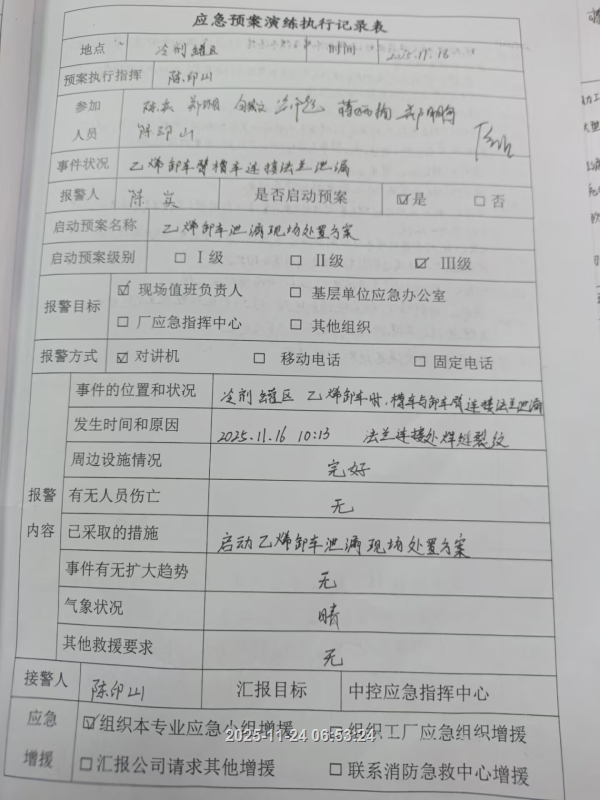 应急预案演练执行记录表
地点 冷剂罐区 时间 2025.11.16
预案执行指挥 陈印山
参加 陈实
人员 陈印山
事件状况 乙烯卸车臂槽车连接法兰泄漏
报警人 陈实 是否启动预案 ☑是 □否
启动预案名称 乙烯卸车泄漏现场处置方案
启动预案级别 □ Ⅰ级 □ Ⅱ级 ☑ Ⅲ级
报警目标 ☑ 现场值班负责人 □ 基层单位应急办公室
□ 厂应急指挥中心 □ 其他组织
报警方式 ☑ 对讲机 □ 移动电话 □ 固定电话
报警内容
事件的位置和状况 冷剂罐区 乙烯卸车时,槽车与卸车臂连接法兰泄漏
发生时间和原因 2025.11.16 10:13 法兰连接处焊缝裂纹
周边设施情况 完好
有无人员伤亡 无
已采取的措施 启动乙烯卸车泄漏现场处置方案
事件有无扩大趋势 无
气象状况 晴
其他救援要求 无
接警人 陈印山 汇报目标 中控应急指挥中心
应急增援 ☑组织本专业应急小组增援 □组织工厂应急组织增援
□汇报公司请求其他增援 □联系消防急救中心增援
2025-11-24 06:53:24